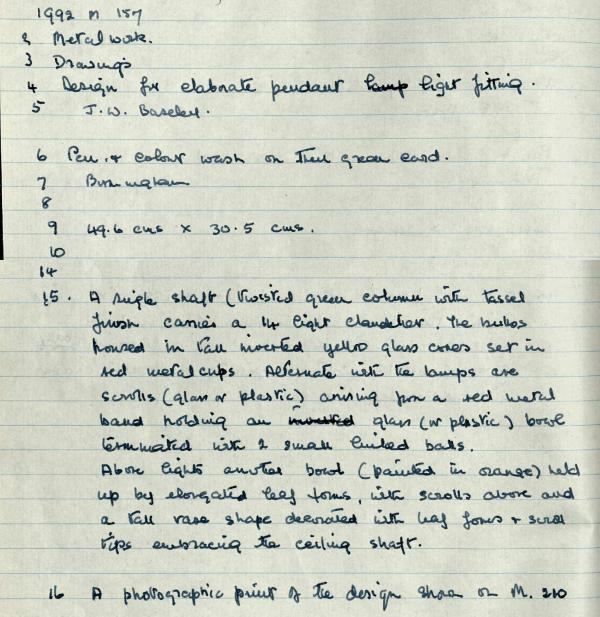 1992 M 157
2 Metalwork.
3 Drawings
4 Design for elaborate pendant lamp light fitting.
5 J.W. Baseley.
6 Pen. + colour wash on thin green card.
7 Birmingham
8
9 49.6 cms × 30.5 cms.
10
14
15. A single shaft (twisted green column with tassel
finish carries a 14 light chandelier. The bulbs
housed in tall inverted yellow glass cones set in
red metal cups. Alternate with the lamps are
scrolls (glass or plastic) arising from a red metal
band holding an inverted glass (or plastic) bowl
terminated with 2 small linked balls.
Above lights another bowl (painted in orange) held
up by elongated leaf forms, with scrolls above and
a tall vase shape decorated with leaf forms + scroll
tips embracing the ceiling shaft.
16 A photographic print of the design shown on M. 210